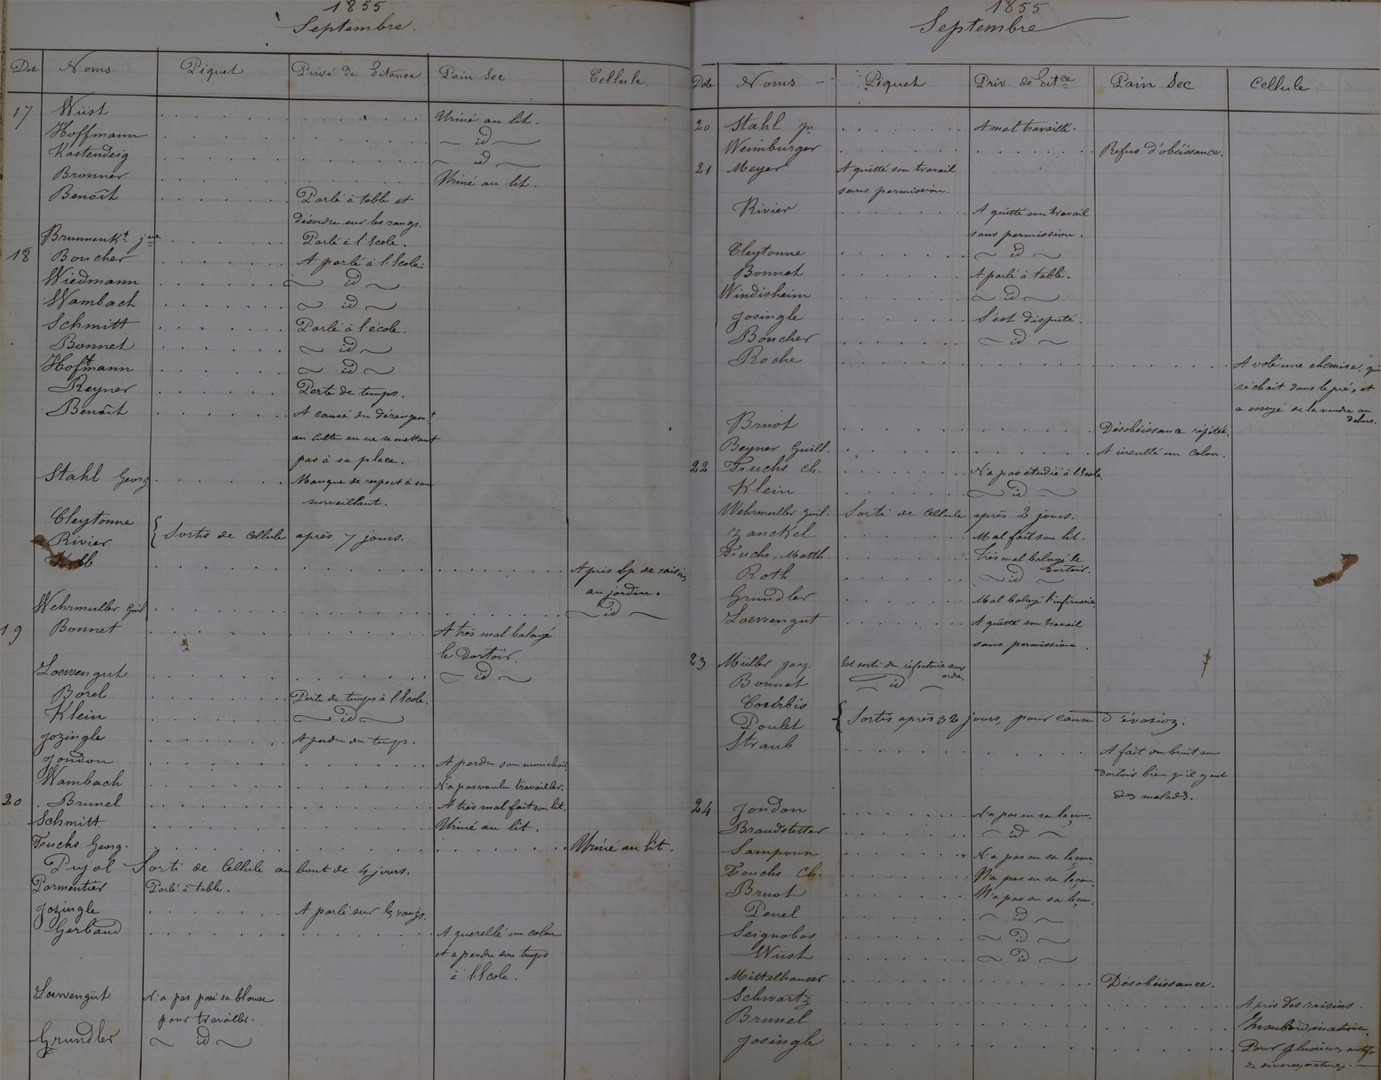 1855
Septembre.
Dte Noms Piquet Privé de Estance Pain Sec Cellule.
17 Wüst Uriné au lit.
Hoffmann id
Kostendeig id
Bronner Uriné au lit.
Benoît Parlé à table et
désordre sur les rangs.
Brunnenkt jne Parlé à l'école.
18 Boucher A parlé à l'école
Wiedmann id
Wambach id
Schmitt Parlé à l'école.
Bonnet id
Hoffmann id
Reyner Perte de temps.
Benoît A causé du dérangemt
au en ne se mettant
pas à sa place.
Stahl Georg Manque de respect à son
surveillant.
Cleytonne
Rivier { Sortis de Cellule après 7 jours.
Kolb A pris de raisin
au jardin.
Wehrmuller Guil id
19 Bonnet A très mal balayé
le Dortoir.
Loewengut id
Borel Perte de temps à l'école.
Klein id
Jozingle A perdu du temps.
Jondon A perdu son mouchoir
Wambach N'a pas voulu travailler.
20 Brunel A très mal fait son lit.
Schmitt Uriné au lit.
Fouchs Georg. Uriné au lit.
Pujol Sorti de Cellule au bout de 4 jours.
Parmentier Parlé à table.
Jozingle A parlé sur les rangs.
Gerbaud A querellé un colon
et a perdu son temps
à l'école.
Loewengut N'a pas posé sa blouse
pour travailler.
Grundler id
1855
Septembre
Dte Noms Piquet Priv. de Estce Pain Sec Cellule
20 Stahl jr A mal travaillé.
Weimburger Refus d'obéissance.
21 Meyer A quitté son travail
sans permission.
Rivier A quitté son travail
sans permission.
Cleytonne id
Bonnet A parlé à table.
Windisheim id
Josingle S'est disputé.
Boucher id
Roche A volé une chemise, qui
séchait dans le pré, et
a essayé de la vendre au
dehors.
Bruot Désobéissance répétée.
Beyner Guill. A insulté un colon.
22 Fouchs Ch. N'a pas étudié à l'école
Klein id
Wehrmuller Guil. Sorti de Cellule après 2 jours.
Zanckel Mal fait son lit.
Fuchs, Math Très mal balayé le
Dortoir.
Roth id
Grundler Mal balayé l'infirmerie.
Loewengut A quitté son travail
sans permission.
23 Müller Est sorti du réfectoire sans
ordre.
Bonnet id
Courbis
Poulet { Sortis après 32 jours, pour cause d'évasion.
Straub A fait du bruit au
dortoir bien qu'il y eut
des malades.
24 Jondon N'a pas su sa leçon.
Brandstetter id
Sampoun N'a pas su sa leçon
Fouchs Ch. N'a pas su sa leçon.
Bruot N'a pas su sa leçon.
Penel id
Seignobos id
Wüst id
Mittelhauser Désobéissance.
Schwartz A pris des raisins.
Brunel Insubordination.
Josingle Pour plusieurs motifs
de diverses natures.